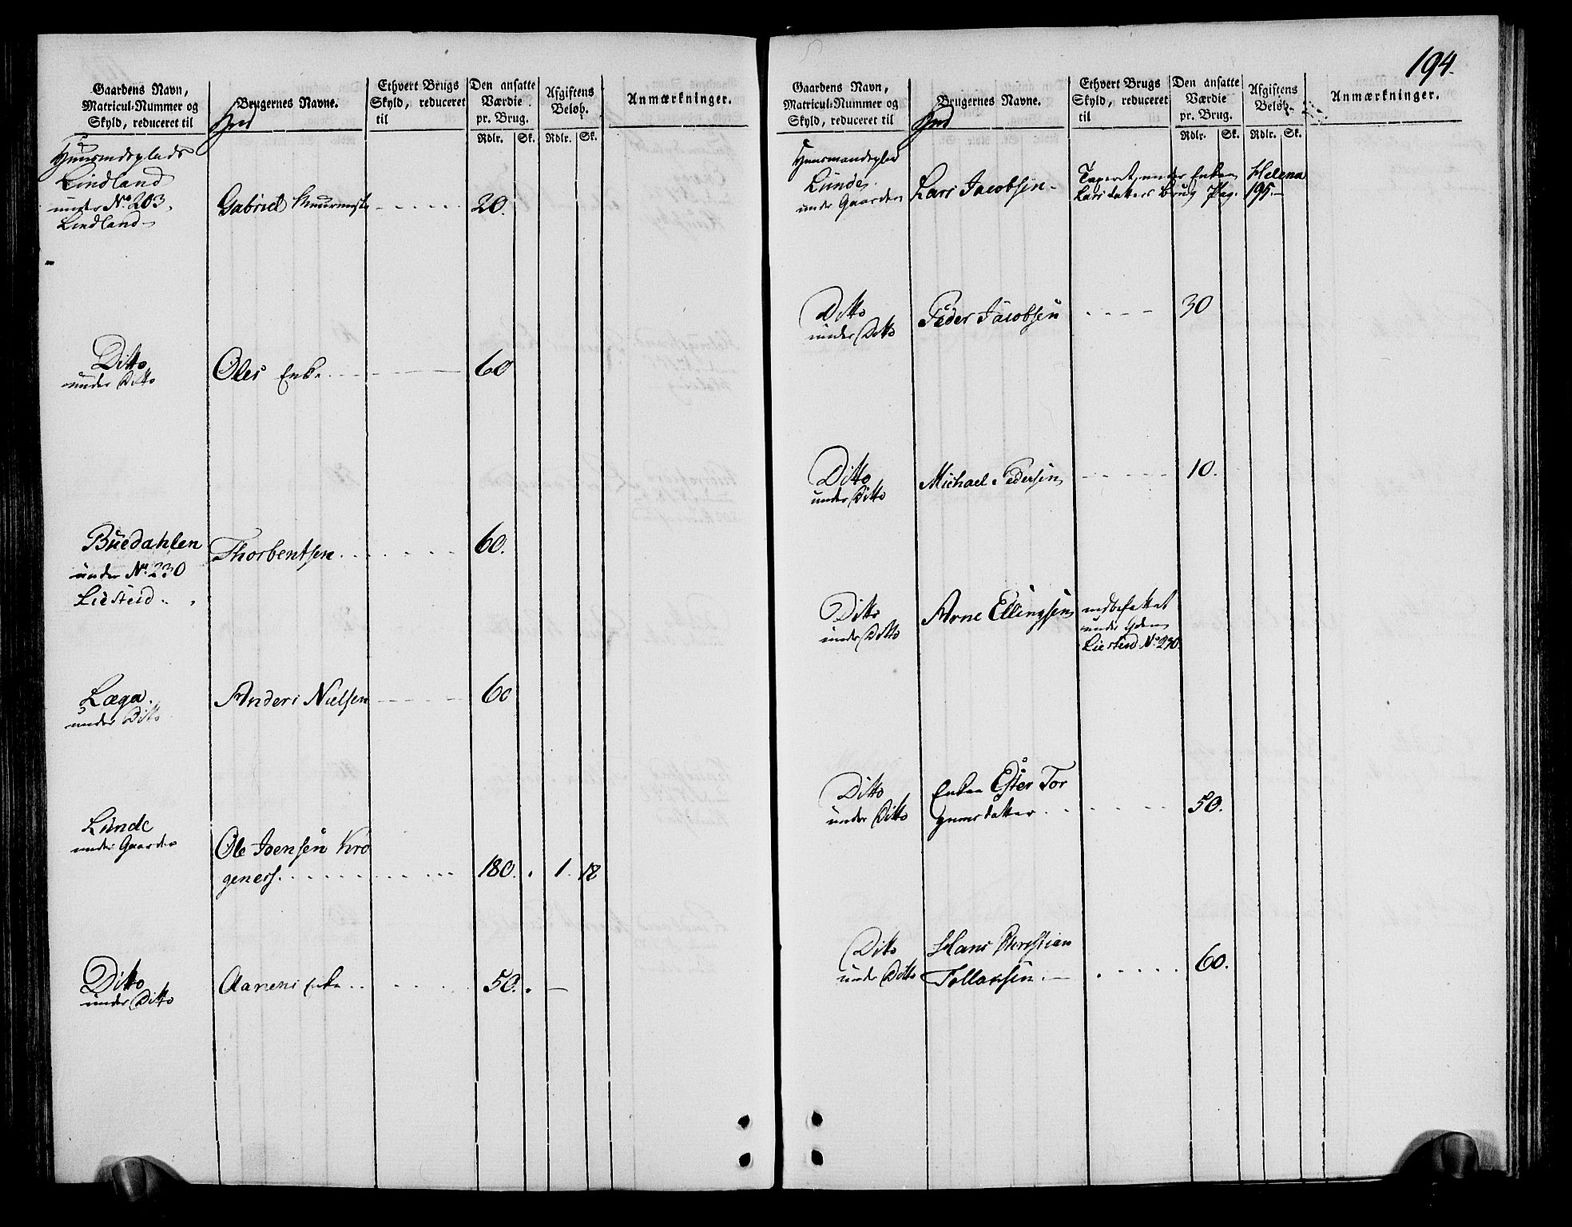 Gaardens Navn,
Matricul-Nummer og
Skyld, reduceret til
Brugernes Navne.
Ethvert Brugs
Skyld, reduceret
til
Den ansatte
Værdie
pr. Brug.
Rdlr. Sk.
Afgiftens
Beløb.
Rdlr. Sk.
Anmærkninger.
Huusmandsplads
Lindland
under No 203
Lindland
Gabriel 20.
Ditto
under Ditto
Oles Enke 60
Buedahlen
under No 230
Liesteid
Thorbentsen 60.
Læga
under Ditto
Anders Nielsen 60
Lunde
under Gaarden
Ole Joensen
180. 1. 12
Ditto
under Ditto
Aanens Enke 50. —
194.
Gaardens Navn,
Matricul-Nummer og
Skyld, reduceret til
Brugernes Navne.
Ethvert Brugs
Skyld, reduceret
til
Den ansatte
Værdie
pr. Brug.
Rdlr. Sk.
Afgiftens
Beløb.
Rdlr. Sk.
Anmærkninger.
Huusmandsplad
Lunde
under Gaarden
Lars Jacobsen
Taxeret under Enken Helena
Larsdatters Brug Pag. 195
Ditto
under Ditto
Peder Jacobsen 30
Ditto
under Ditto
Michael Pedersen 10.
Ditto
under Ditto
Arne Ellingsen
indbefattet
under
Liesteid No 230.
Ditto
under Ditto
Enken Ester Tor
gumsdatter 50.
Ditto
under Ditto
Hans Christian
Tollaksen 60.